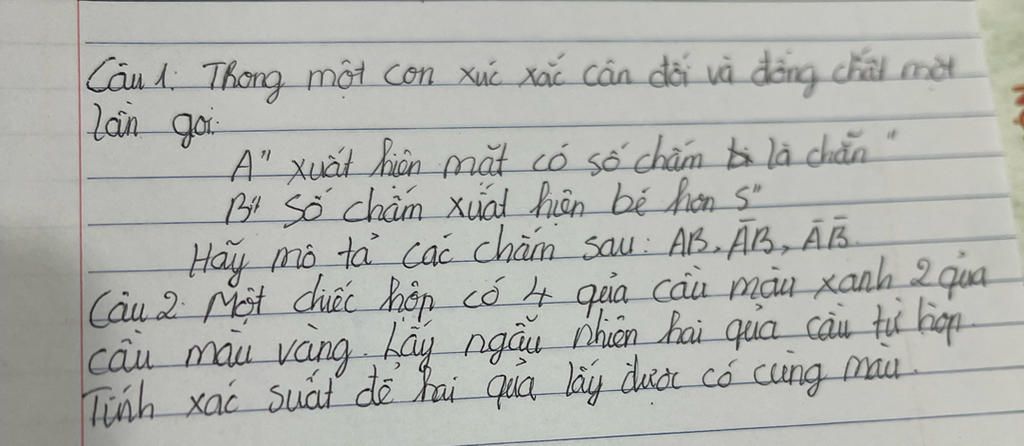 Câu 1: Thong một con xúc xắc cân đối và đồng chất một
lần gọi:
A" xuất hiện mặt có số chấm là chẵn"
B" Số chấm xuất hiện bé hơn 5"
Hãy mô tả các chấm sau: AB, A̅B, A̅B̅.
Câu 2: Một chiếc hộp có 4 quả cầu màu xanh 2 qủa
cầu màu vàng. Lấy ngẫu nhiên hai quả cầu từ hộp.
Tính xác suất để hai quả lấy được có cùng màu.